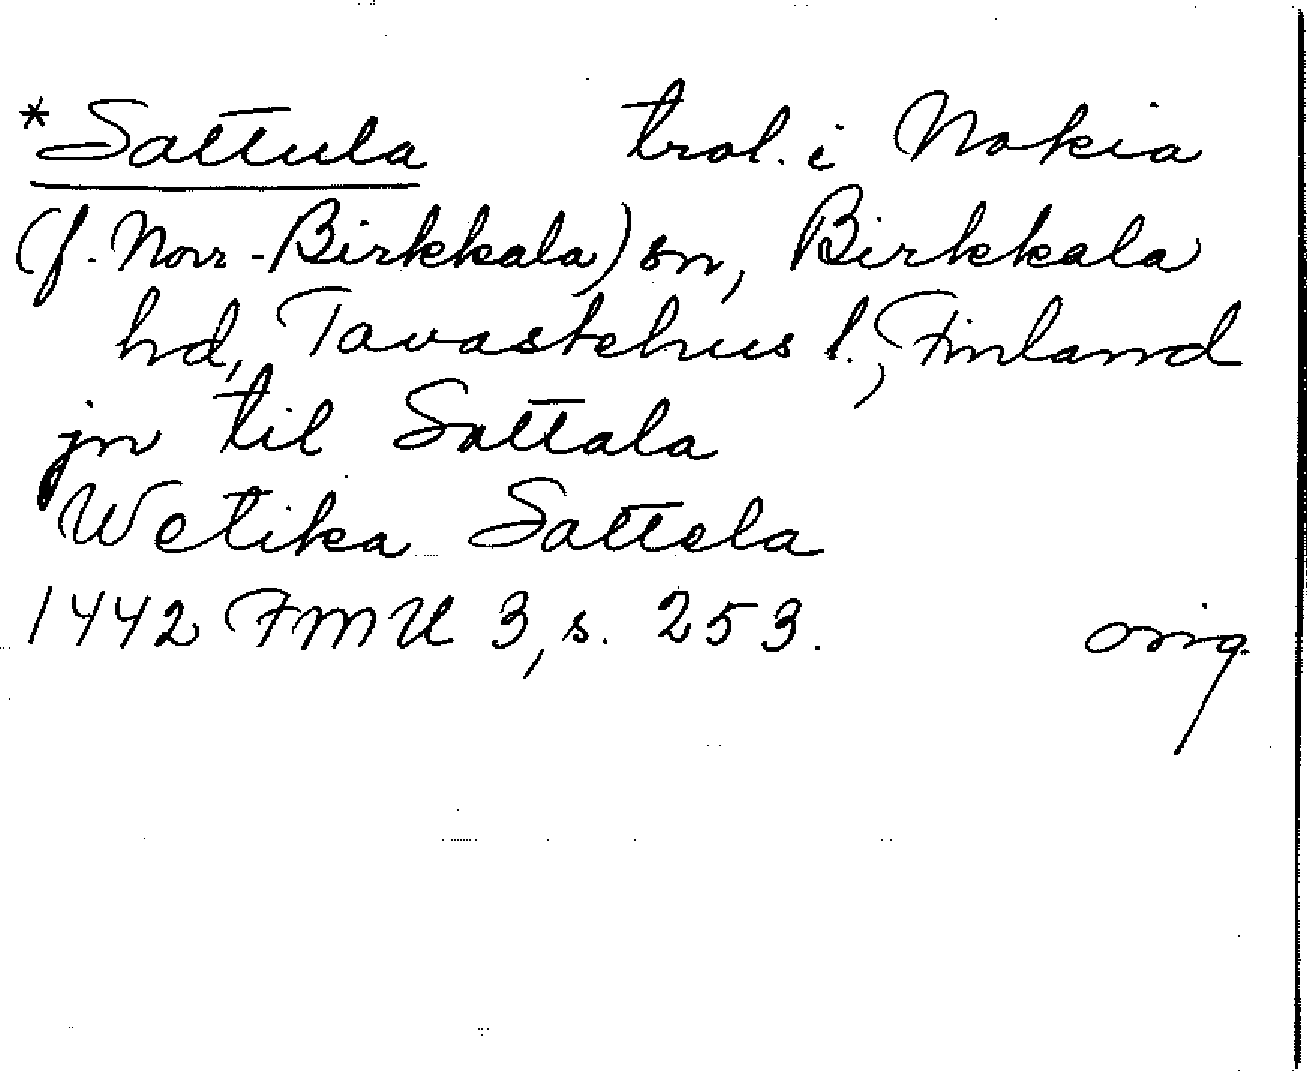 *Sattula trol. i Nokia
(f. Norr-Birkkala) sn, Birkkala
hd, Tavastehus l., Finland
jn til Sattala
Wetika Sattela
1442 FMU 3, s. 253. orig.